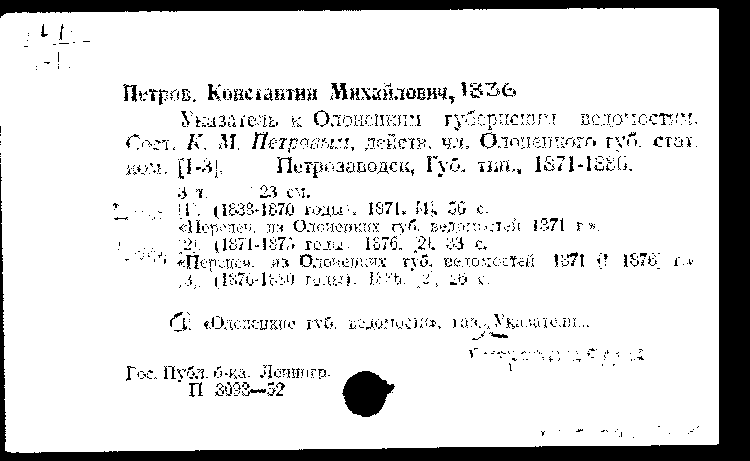 Петров, Константин Михайлович, 1836
Указатель к Олонецким губернским ведомостям.
Сост. К. М. Петровым, действ. чл. Олонецкого губ. стат.
ком. [1-3]. Петрозаводск, Губ. тип., 1871-1886.
3 т. 23 см.
[1]. (1838-1870 годы). 1871. [4], 56 с.
«Перепеч. из Олонецких губ. ведомостей 1871 г.».
[2]. (1871-1875 годы). 1876. [2], 33 с.
«Перепеч. из Олонецких губ. ведомостей 1871 (! 1876) г.»
[3]. (1876-1880 годы). [2], 26 с.
«Олонецкие губ. ведомости», газ. Указатели.
Гос. Публ. б-ка. Ленингр.
П 3093—52